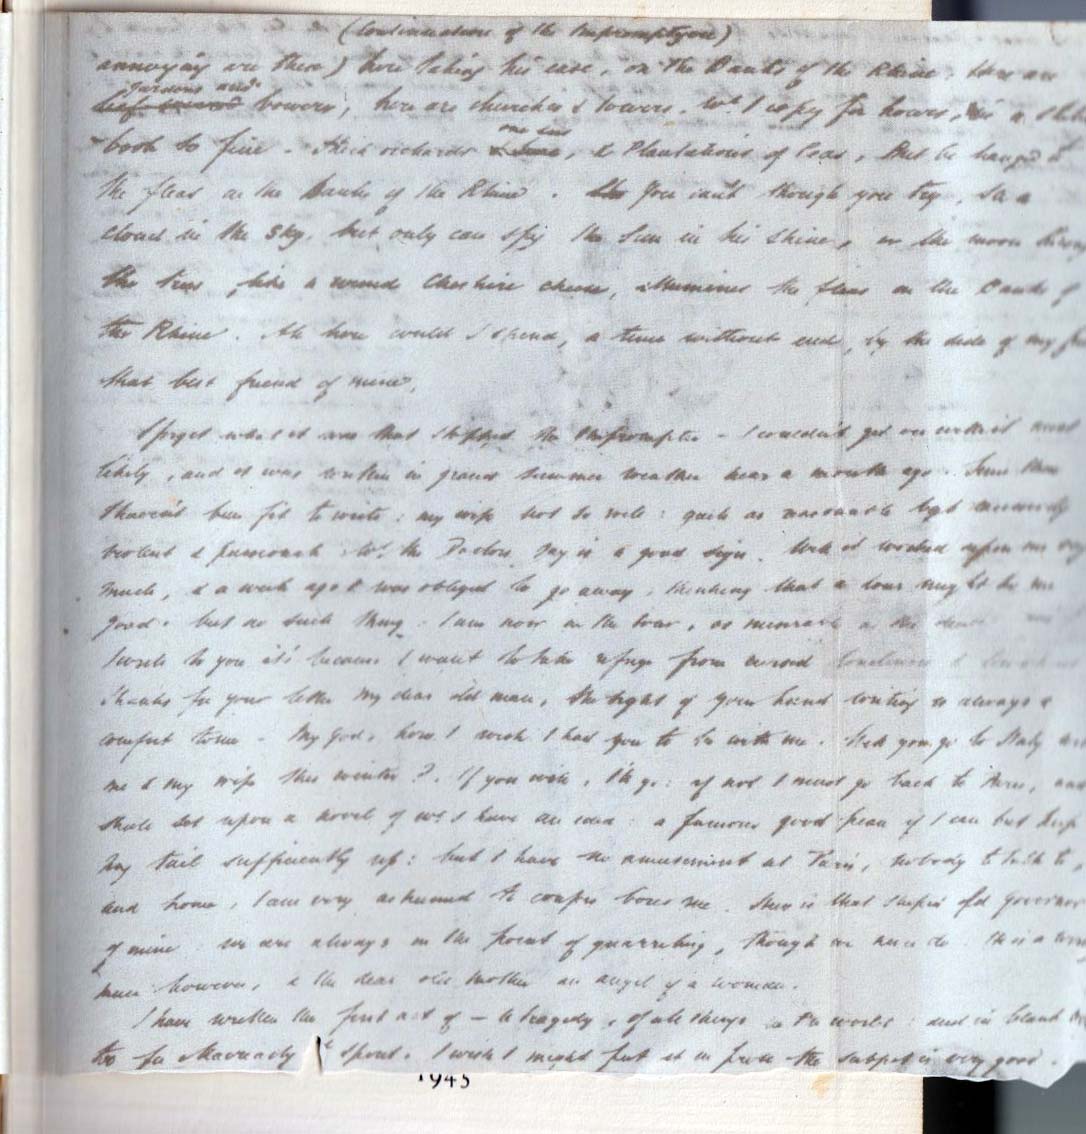 (Continuation of the Impromptyou)
annoying are these) here taking his ease, on the Banks of the Rhine. Here are
gardens and
bowers, here are churches & towers. wh I copy for hours, in a
book so fine. Thick orchards & Plantations of Peas, But be hanged to
one sees
the fleas on the Banks of the Rhine. You can't though you try, see a
cloud in the sky. but only can spy the Sun in his shine, or the moon
the trees like a round Cheshire cheese, illumines the fleas on the Banks of
the Rhine. Ah how could I spend, a time without end, by the side of my
that best friend of mine.
I forget what it was that stopped the Impromptu - I couldn't get on with it most
likely, and it was written in grand summer weather near a month ago. Since then
I haven't been fit to write: my wife not so well: quite as reasonable but
violent & passionate wh. the Doctors say is a good sign. But it worked upon me very
much, & a week ago I was obliged to go away, thinking that a tour might do me
good. but no such thing. I am now on the tour, as miserable as the
I write to you it's because I want to take refuge from cursed loneliness &
Thanks for your letter my dear old man, the sight of your hand writing is always a
comfort to me - My God, how I wish I had you to be with me. Will you go to Italy with
me & my wife this winter?. If you will, I'll go: if not I must go back to Paris, and
shall set upon a novel of wh I have an idea: a famous good plan if I can but keep
my tail sufficiently up: but I have no amusement at Paris, nobody to talk to,
and home, I am very ashamed to confess bores me. There is that stupid old governor
of mine we are always on the point of quarreling, though we never do. He is a
man however, & the dear old mother an angel of a woman.
I have written the first act of - a tragedy, of all things in the world: and in blank
too for Macready to spout. I wish I might put it in prose - the subject is very good.
1945